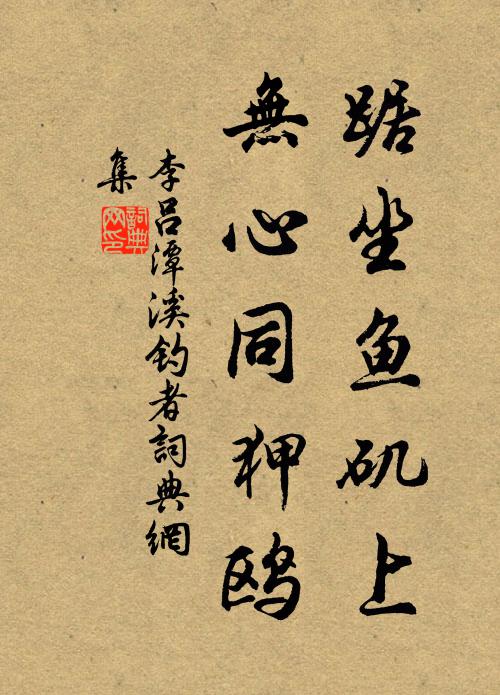 踞坐鱼矶上
無心同狎鸥
李吕潭溪钓者詞典網
集
詞典网印